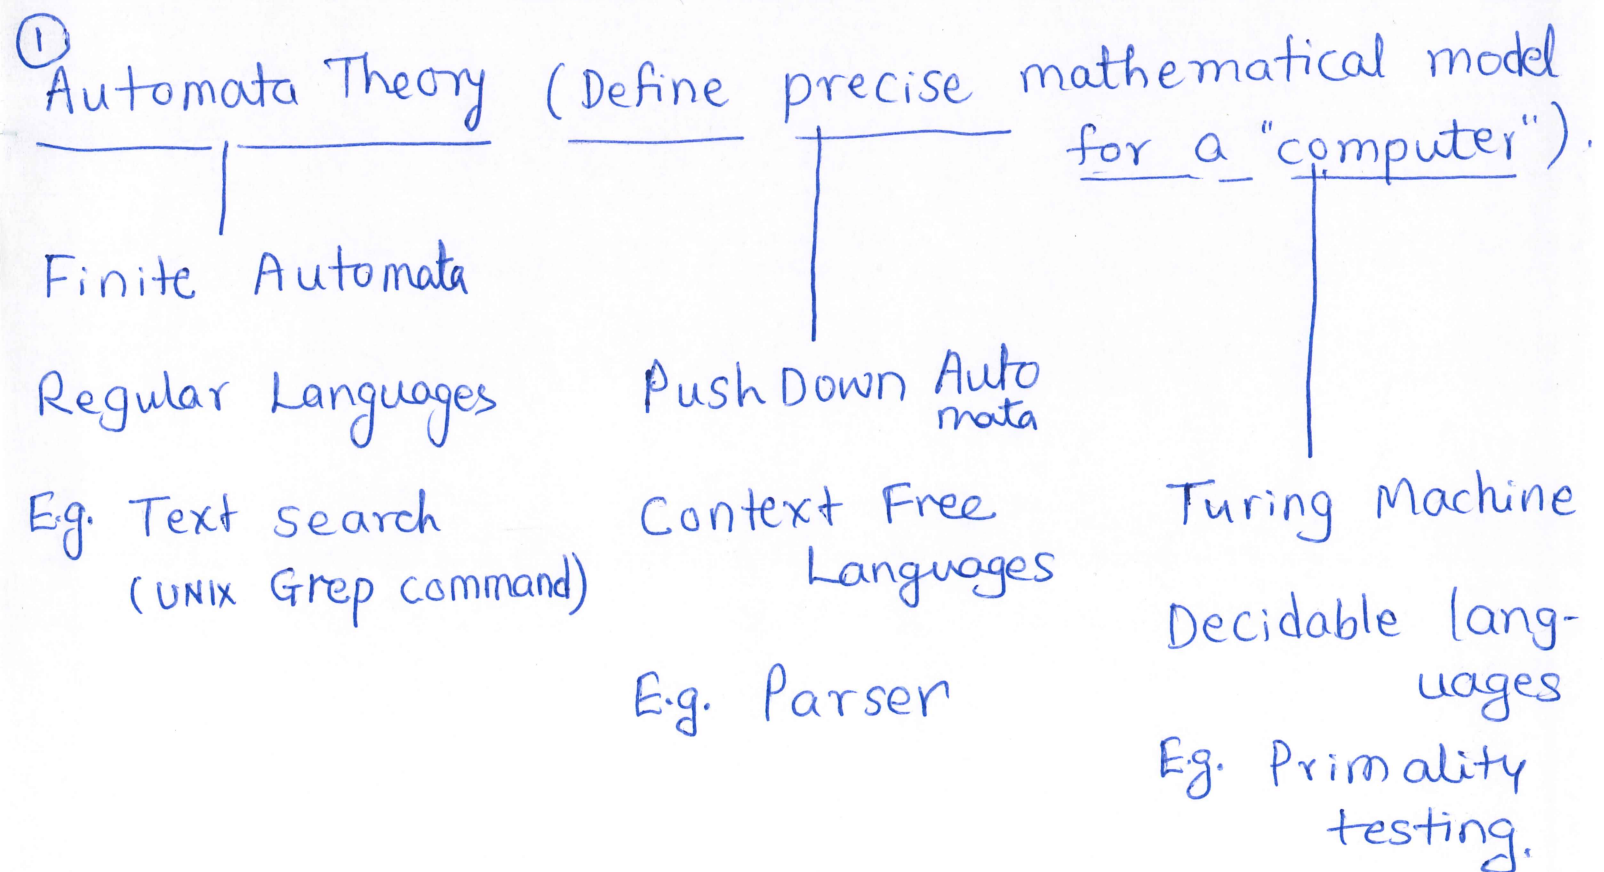 ①
Automata Theory (Define precise mathematical model
for a "computer").
Finite Automata
Regular Languages
Eg. Text search
(UNIX Grep command)
PushDown Auto
mata
Context Free
Languages
E.g. Parser
Turing Machine
Decidable lang-
uages
Eg. Primality
testing.